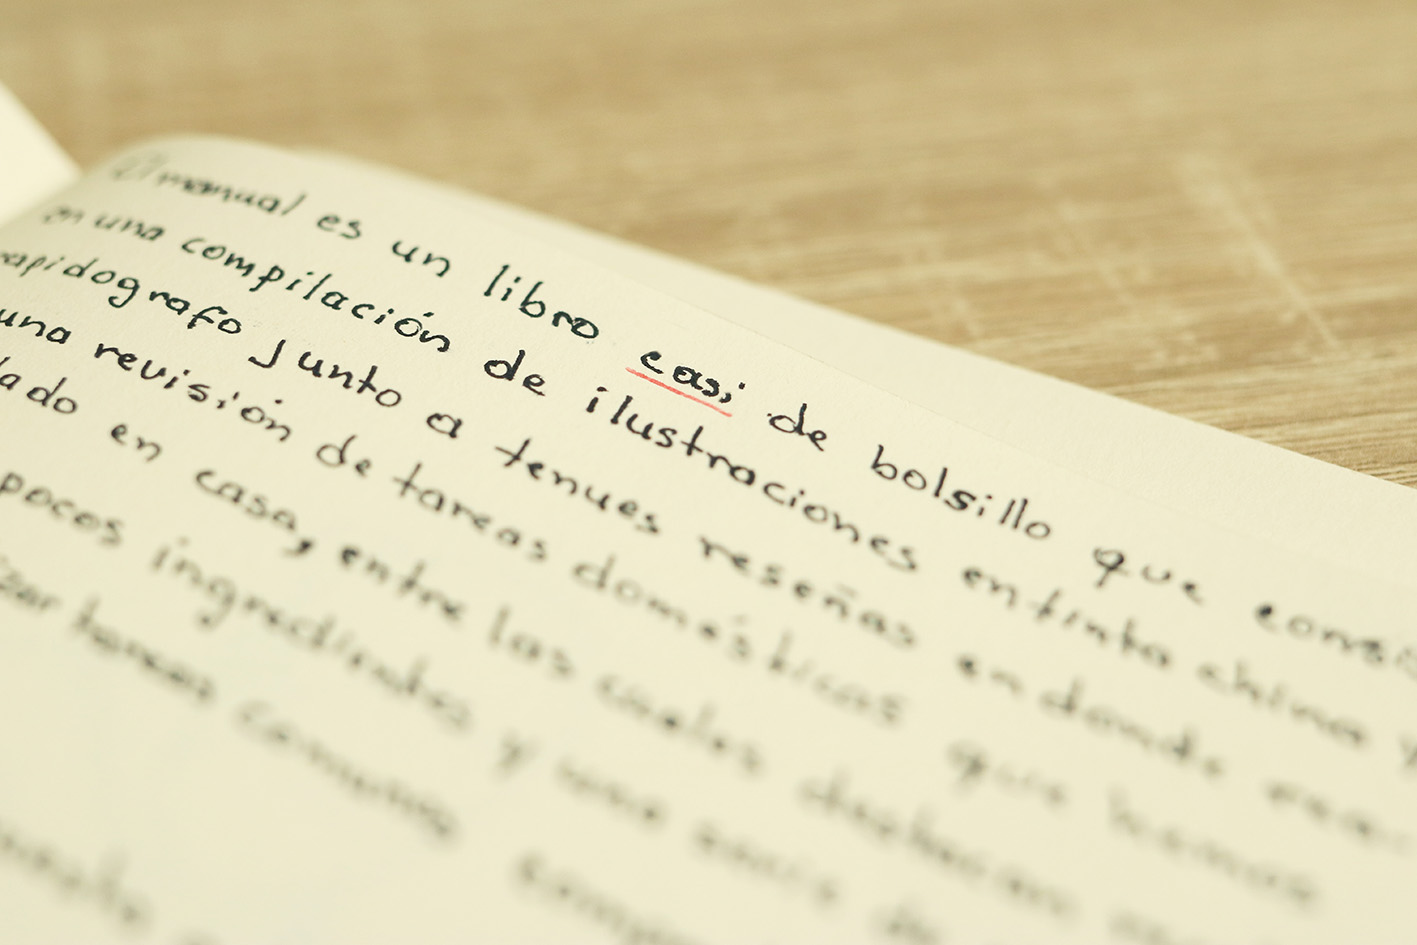 El manual es un libro casi de bolsillo que consis
en una compilación de ilustraciones en tinta china y
rapidografo junto a tenues reseñas en donde rea-
una revisión de tareas domésticas que hemos
lado en casa, entre las cuales destacan
pocos ingredientes y una serie de
zar tareas comunes